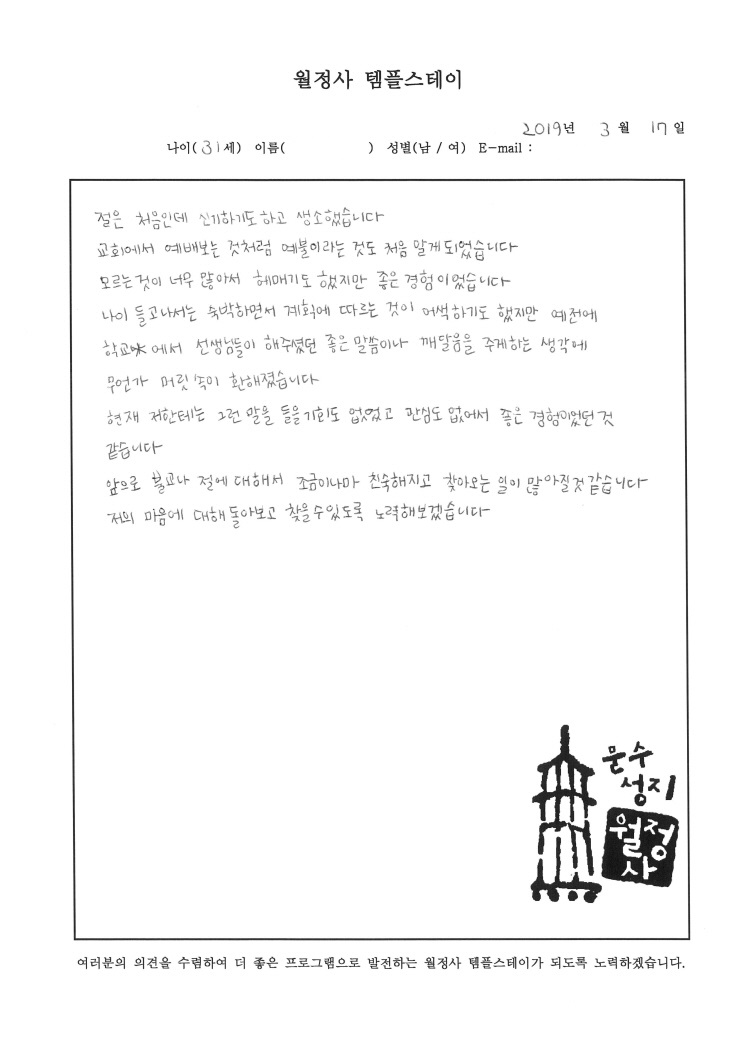 월정사 템플스테이
2019년 3월 17일
나이(31세) 이름( ) 성별(남 / 여) E-mail :
절은 처음인데 신기하기도하고 생소했습니다
교회에서 예배보는 것처럼 예불이라는 것도 처음 알게되었습니다
모르는것이 너무 많아서 헤매기도 했지만 좋은 경험이었습니다
나이 들고나서는 숙박하면서 계획에 따르는 것이 어색하기도 했지만 예전에
학교에서 선생님들이 해주셨던 좋은 말씀이나 깨달음을 주게하는 생각에
무언가 머릿속이 환해졌습니다
현재 저한테는 그런 말을 들을기회도 없었고 관심도 없어서 좋은 경험이었던것
같습니다
앞으로 불교나 절에 대해서 조금이나마 친숙해지고 찾아오는 일이 많아질것 같습니다
저의 마음에 대해 돌아보고 찾을수있도록 노력해보겠습니다
문수
성지
월정
사
여러분의 의견을 수렴하여 더 좋은 프로그램으로 발전하는 월정사 템플스테이가 되도록 노력하겠습니다.